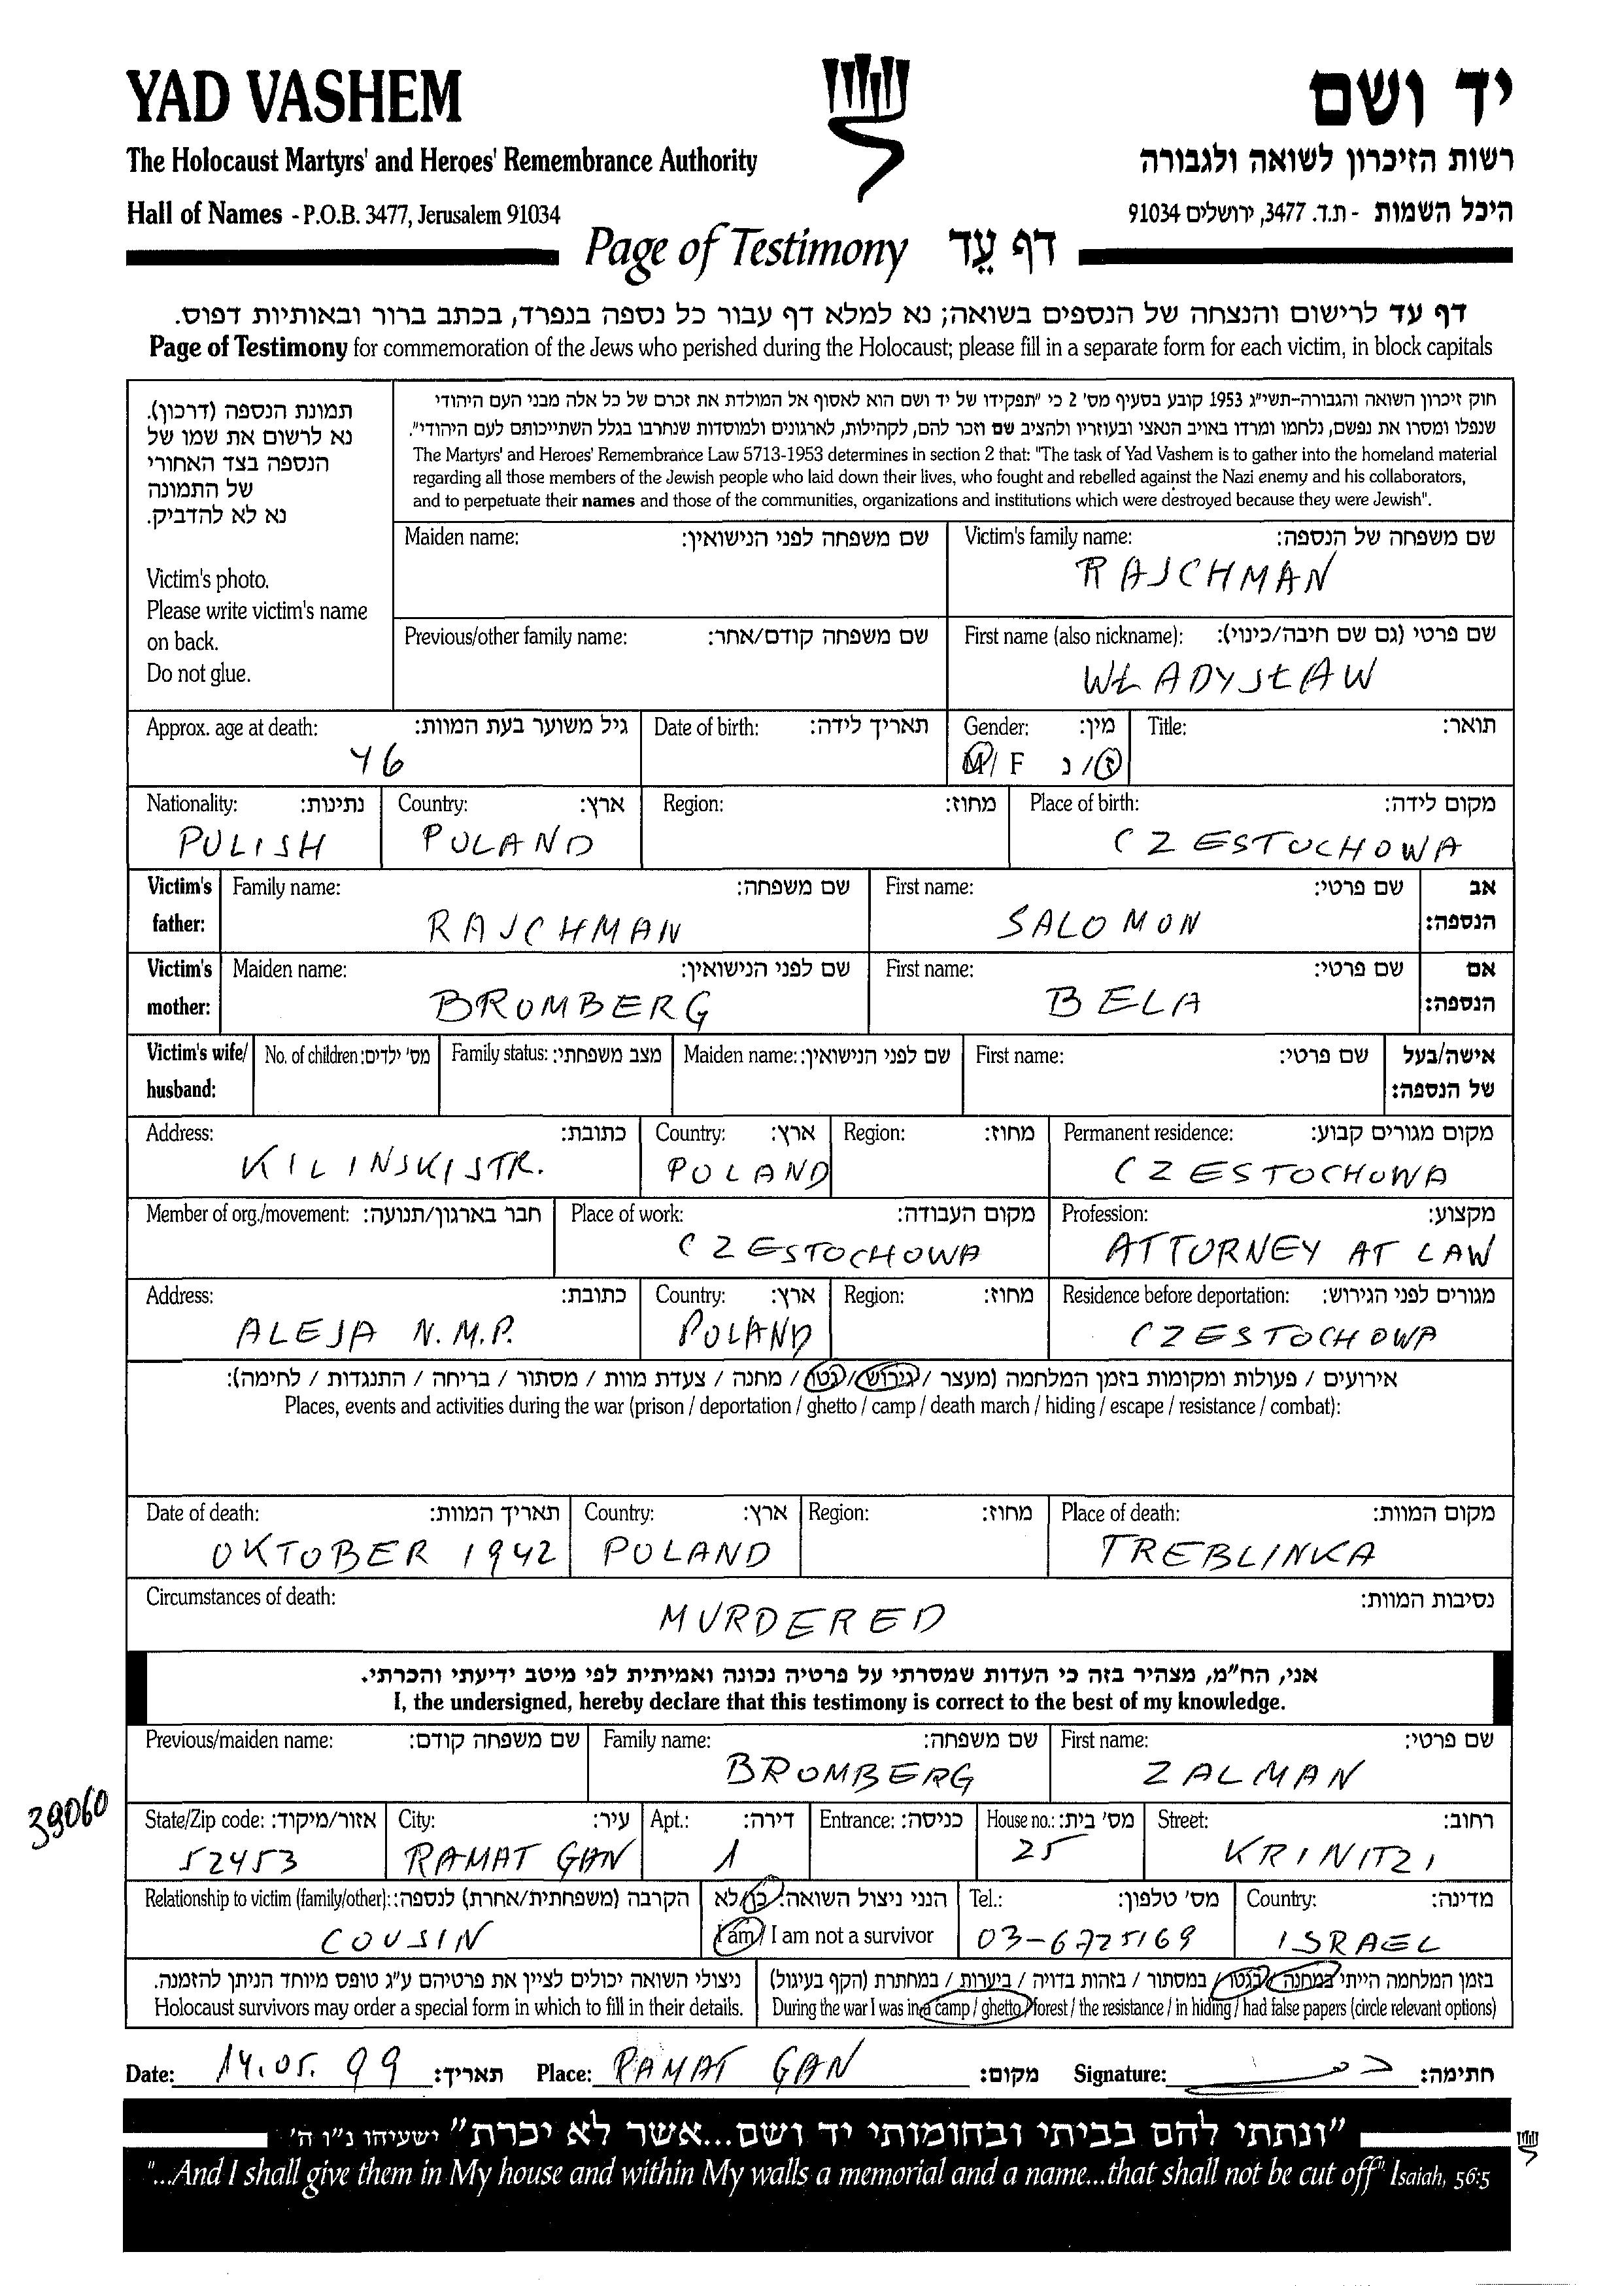 YAD VASHEM
יד ושם
The Holocaust Martyrs' and Heroes' Remembrance Authority
רשות הזיכרון לשואה ולגבורה
Hall of Names - P.O.B. 3477, Jerusalem 91034
היכל השמות - ת.ד. 3477, ירושלים 91034
Page of Testimony דף עֵד
דף עד לרישום והנצחה של הנספים בשואה; נא למלא דף עבור כל נספה בנפרד, בכתב ברור ובאותיות דפוס.
Page of Testimony for commemoration of the Jews who perished during the Holocaust; please fill in a separate form for each victim, in block capitals
תמונת הנספה (דרכון).
נא לרשום את שמו של
הנספה בצד האחורי
של התמונה
נא לא להדביק.
Victim's photo.
Please write victim's name
on back.
Do not glue.
חוק זיכרון השואה והגבורה-תשי"ג 1953 קובע בסעיף מס' 2 כי "תפקידו של יד ושם הוא לאסוף אל המולדת את זכרם של כל אלה מבני העם היהודי
שנפלו ומסרו את נפשם, נלחמו ומרדו באויב הנאצי ובעוזריו ולהציב שם וזכר להם, לקהילות, לארגונים ולמוסדות שנחרבו בגלל השתייכותם לעם היהודי".
The Martyrs' and Heroes' Remembrance Law 5713-1953 determines in section 2 that: "The task of Yad Vashem is to gather into the homeland material
regarding all those members of the Jewish people who laid down their lives, who fought and rebelled against the Nazi enemy and his collaborators,
and to perpetuate their names and those of the communities, organizations and institutions which were destroyed because they were Jewish".
Maiden name: שם משפחה לפני הנישואין:
Victim's family name: שם משפחה של הנספה:
RAJCHMAN
Previous/other family name: שם משפחה קודם/אחר:
First name (also nickname): שם פרטי (גם שם חיבה/כינוי):
WŁADYSŁAW
Approx. age at death: גיל משוער בעת המוות:
46
Date of birth: תאריך לידה:
Gender: מין:
M/F ז/נ
Title: תואר:
Nationality: נתינות:
POLISH
Country: ארץ:
POLAND
Region: מחוז:
Place of birth: מקום לידה:
CZESTOCHOWA
Victim's father:
Family name: שם משפחה:
RAJCHMAN
First name: שם פרטי:
SALOMON
אב הנספה:
Victim's mother:
Maiden name: שם לפני הנישואין:
BROMBERG
First name: שם פרטי:
BELA
אם הנספה:
Victim's wife/ husband:
No. of children: מס' ילדים:
Family status: מצב משפחתי:
Maiden name: שם לפני הנישואין:
First name: שם פרטי:
אישה/בעל של הנספה:
Address: כתובת:
KILINSKI STR.
Country: ארץ:
POLAND
Region: מחוז:
Permanent residence: מקום מגורים קבוע:
CZESTOCHOWA
Member of org./movement: חבר בארגון/תנועה:
Place of work: מקום העבודה:
CZESTOCHOWA
Profession: מקצוע:
ATTORNEY AT LAW
Address: כתובת:
ALEJA N.M.P.
Country: ארץ:
POLAND
Region: מחוז:
Residence before deportation: מגורים לפני הגירוש:
CZESTOCHOWA
אירועים / פעולות ומקומות בזמן המלחמה (מעצר / גירוש / גטו / מחנה / צעדת מוות / מסתור / בריחה / התנגדות / לחימה):
Places, events and activities during the war (prison / deportation / ghetto / camp / death march / hiding / escape / resistance / combat):
Date of death: תאריך המוות:
OKTOBER 1942
Country: ארץ:
POLAND
Region: מחוז:
Place of death: מקום המוות:
TREBLINKA
Circumstances of death: נסיבות המוות:
MURDERED
אני, הח"מ, מצהיר בזה כי העדות שמסרתי על פרטיה נכונה ואמיתית לפי מיטב ידיעתי והכרתי.
I, the undersigned, hereby declare that this testimony is correct to the best of my knowledge.
Previous/maiden name: שם משפחה קודם:
Family name: שם משפחה:
BROMBERG
First name: שם פרטי:
ZALMAN
39060
State/Zip code: אזור/מיקוד:
52453
City: עיר:
RAMAT GAN
Apt.: דירה:
1
Entrance: כניסה:
House no.: מס' בית:
25
Street: רחוב:
KRINITZI
Relationship to victim (family/other): הקרבה (משפחתית/אחרת) לנספה:
COUSIN
הנני ניצול השואה: כן/לא
I am / I am not a survivor
Tel.: מס' טלפון:
03-6725169
Country: מדינה:
ISRAEL
ניצולי השואה יכולים לציין את פרטיהם ע"ג טופס מיוחד הניתן להזמנה.
Holocaust survivors may order a special form in which to fill in their details.
בזמן המלחמה הייתי במחנה / בגטו / במסתור / בזהות בדויה / ביערות / במחתרת (הקף בעיגול)
During the war I was in a camp / ghetto / forest / the resistance / in hiding / had false papers (circle relevant options)
Date: 14.05.99 תאריך: Place: RAMAT GAN מקום: Signature: חתימה:
"ונתתי להם בביתי ובחומותי יד ושם...אשר לא יכרת" ישעיהו נ"ו ה'
"...And I shall give them in My house and within My walls a memorial and a name...that shall not be cut off" Isaiah, 56:5